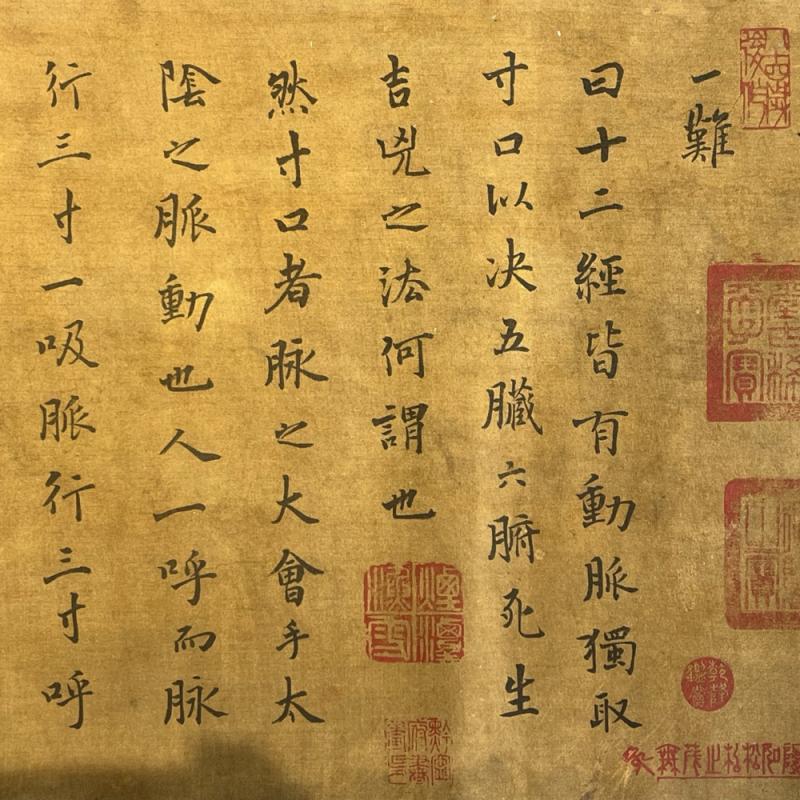 一難
曰十二經皆有動脈獨取
寸口以決五臟六腑死生
吉兇之法何謂也
然寸口者脉之大會手太
陰之脈動也人一呼而脉
行三寸一吸脈行三寸呼